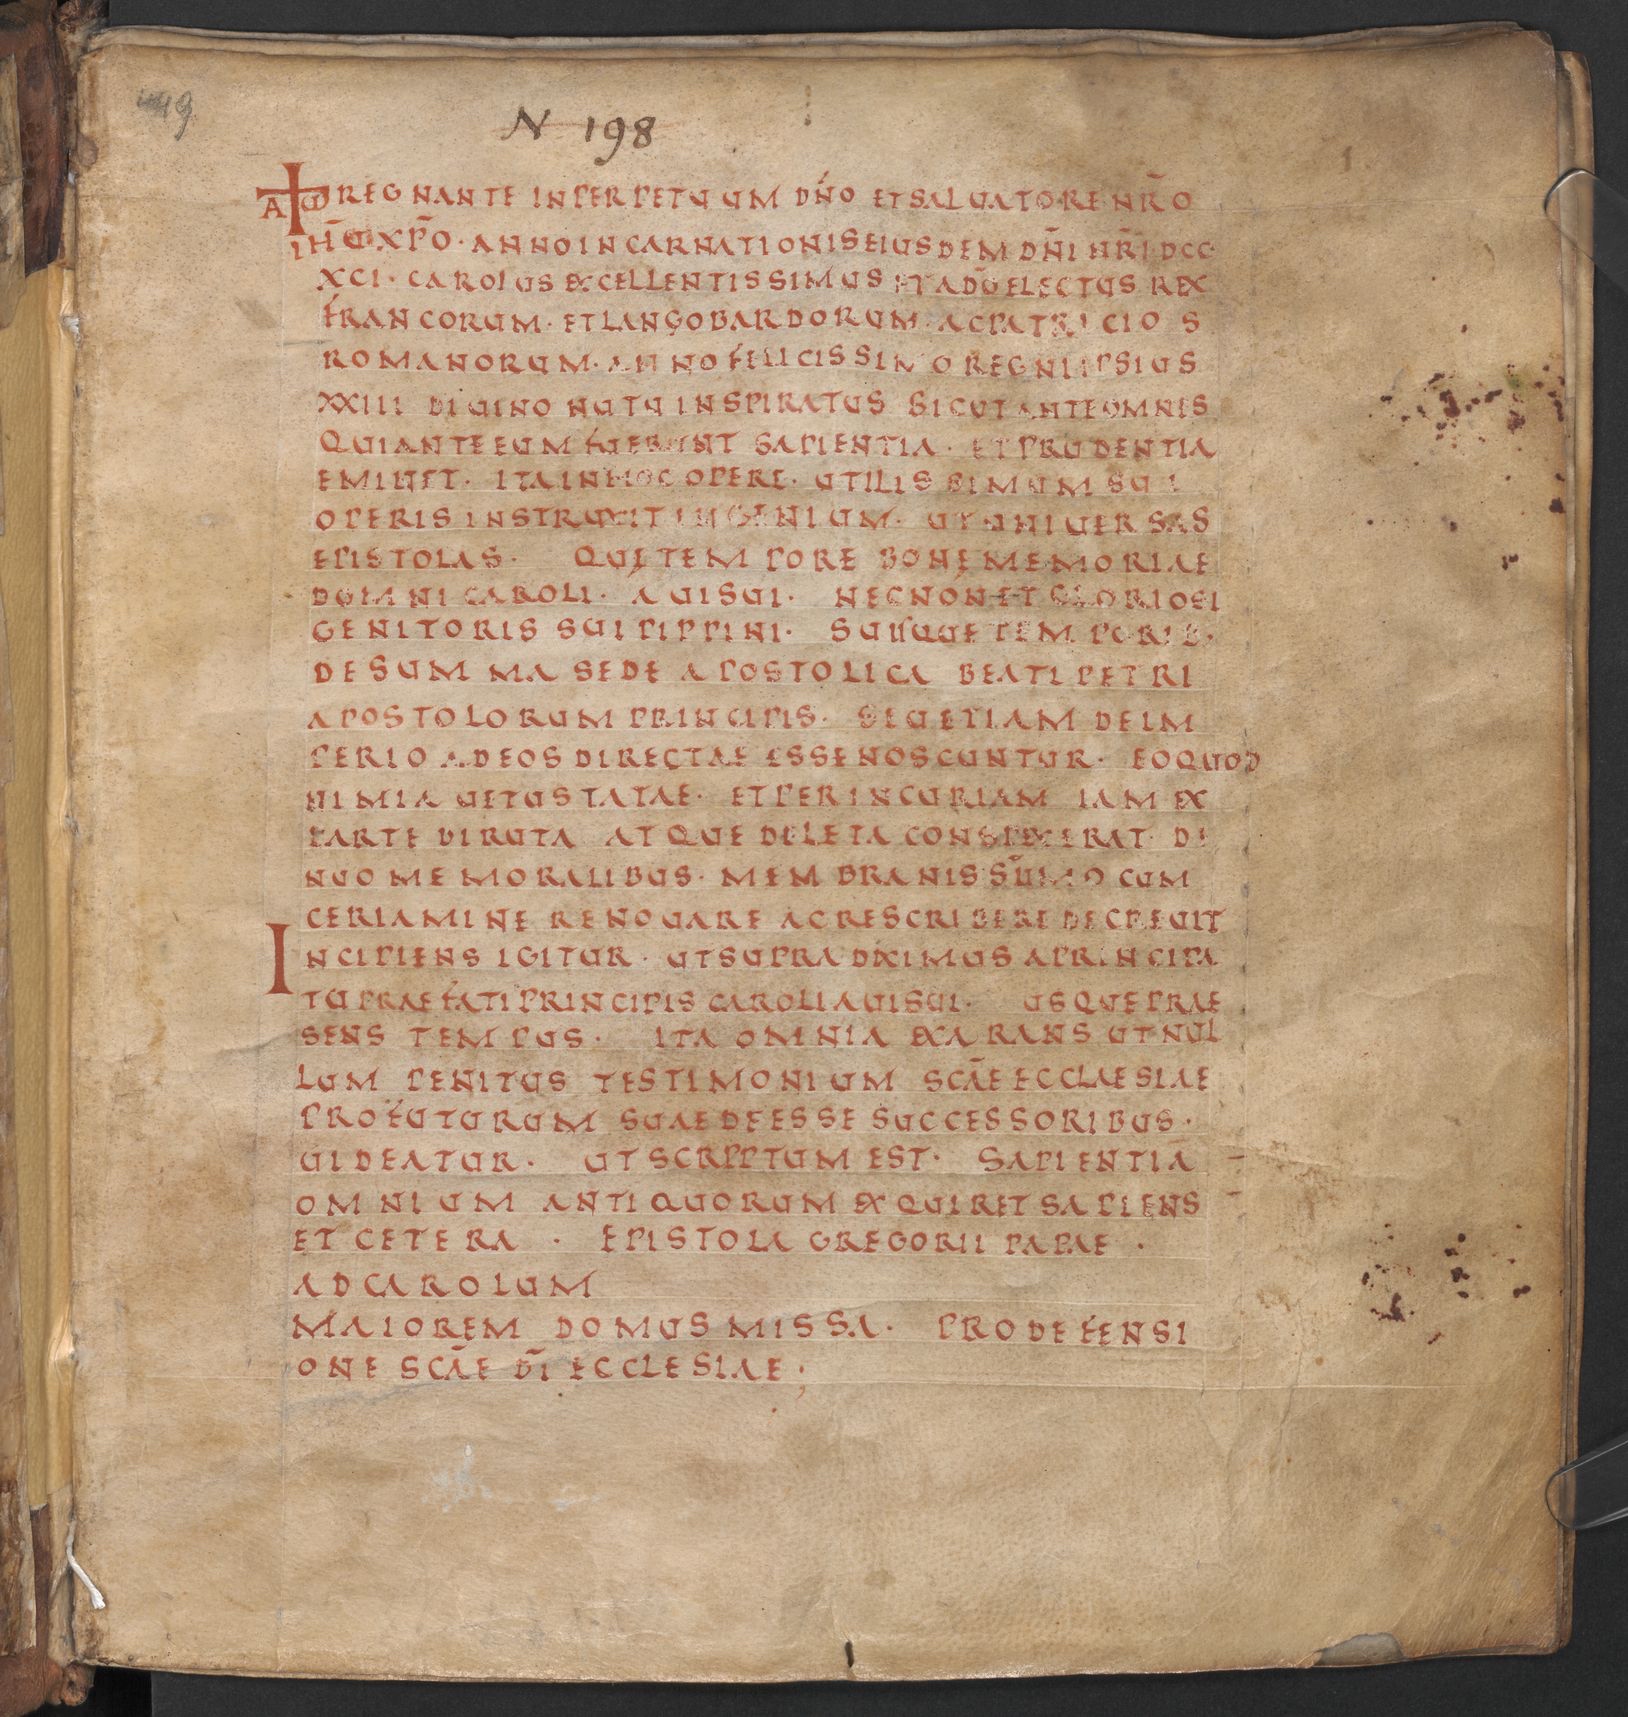 449
N 198
A ω REGNANTE IN PERPETUUM DÑO ET SALUATORE NR̃O
IHŨ XPÕ · ANNO INCARNATIONIS EIUSDEM DÑI NR̃I DCC
XCI · CAROLUS EXCELLENTISSIMUS ET A DÕ ELECTUS REX
FRANCORUM · ET LANGOBARDORUM · AC PATRICIOS
ROMANORUM · ANNO FELICISSIMO REGNI IPSIUS
XXIII DIUINO NUTU INSPIRATUS SICUT ANTE OMNES
QUI ANTE EUM FUERUNT SAPIENTIA · ET PRUDENTIA
EMINET · ITA IN HOC OPERE · UTILISSIMUM SUI
OPERIS INSTRUXIT INGENIUM · UT UNIUERSAS
EPISTOLAS · QUĘ TEMPORE BONĘ MEMORIAE
DOMNI CAROLI · AUI SUI · NECNON ET GLORIOSI
GENITORIS SUI PIPPINI · SUISQUE TEMPORIB·
DE SUMMA SEDE APOSTOLICA BEATI PETRI
APOSTOLORUM PRINCIPIS · SEU ETIAM DE IM
PERIO AD EOS DIRECTAE ESSE NOSCUNTUR · EO QUOD
NIMIA UETUSTATAE · ET PER INCURIAM IAM EX
PARTE DIRUTA ATQUE DELETA CONSPEXERAT · DE
NUO MEMORALIBUS · MEMBRANIS SUMMO CUM
CERTAMINE RENOUARE AC RESCRIBERE DECREUIT
INCIPIENS IGITUR · UT SUPRA DIXIMUS A PRINCIPA
TU PRAEFATI PRINCIPIS CAROLI AUI SUI · USQUE PRAE
SENS TEMPUS · ITA OMNIA EXARANS UT NUL
LUM PENITUS TESTIMONIUM SCÃE ECCLAESIAE
PROFUTURUM SUAE DEESSE SUCCESSORIBUS ·
UIDEATUR · UT SCRIPTUM EST · SAPIENTIA
OMNIUM ANTIQUORUM EXQUIRET SAPIENS
ET CETERA · EPISTOLA GREGORII PAPAE ·
AD CAROLUM
MAIOREM DOMUS MISSA · PRO DEFENSI
ONE SCÃE DĨ ECCLESIAE ;